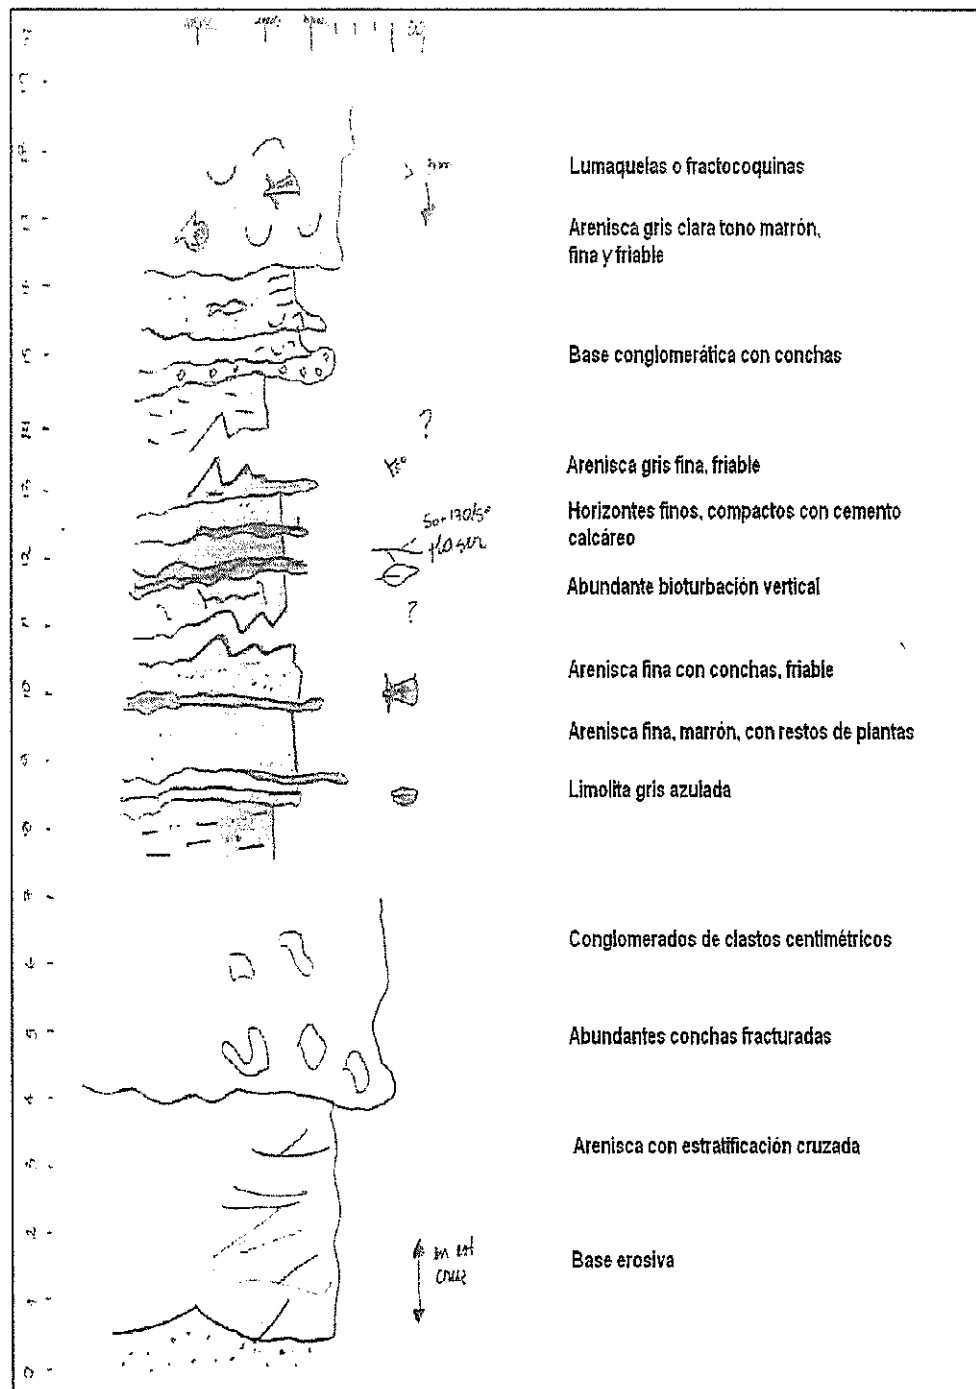 Lumaquelas o fractocoquinas
Arenisca gris clara tono marrón,
fina y friable
Base conglomerática con conchas
?
Arenisca gris fina, friable
Horizontes finos, compactos con cemento
calcáreo
flaser
Abundante bioturbación vertical
?
Arenisca fina con conchas, friable
Arenisca fina, marrón, con restos de plantas
Limolita gris azulada
Conglomerados de clastos centimétricos
Abundantes conchas fracturadas
Arenisca con estratificación cruzada
Base erosiva
m est
cruz
15
14
13
12
11
10
9
8
7
6
5
4
3
2
1
0